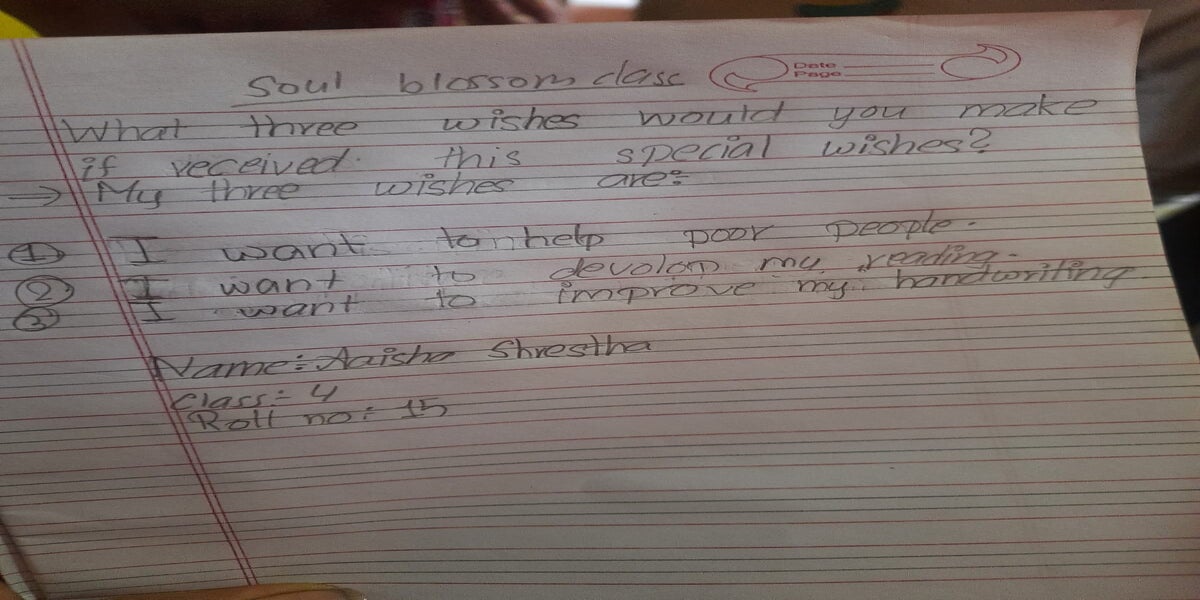 Soul blossom class
Date
Page
What three wishes would you make
if received. this special wishes?
→ My three wishes are:
① I want to help poor people.
② I want to devolop my reading.
③ I want to improve my handwriting
Name: Aaisha Shrestha
Class: 4
Roll no: 15